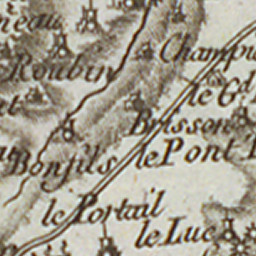 neau
Roubin
Champ
le G.d
Brisson
Bonfils
le Pont
le Portail
le Luc